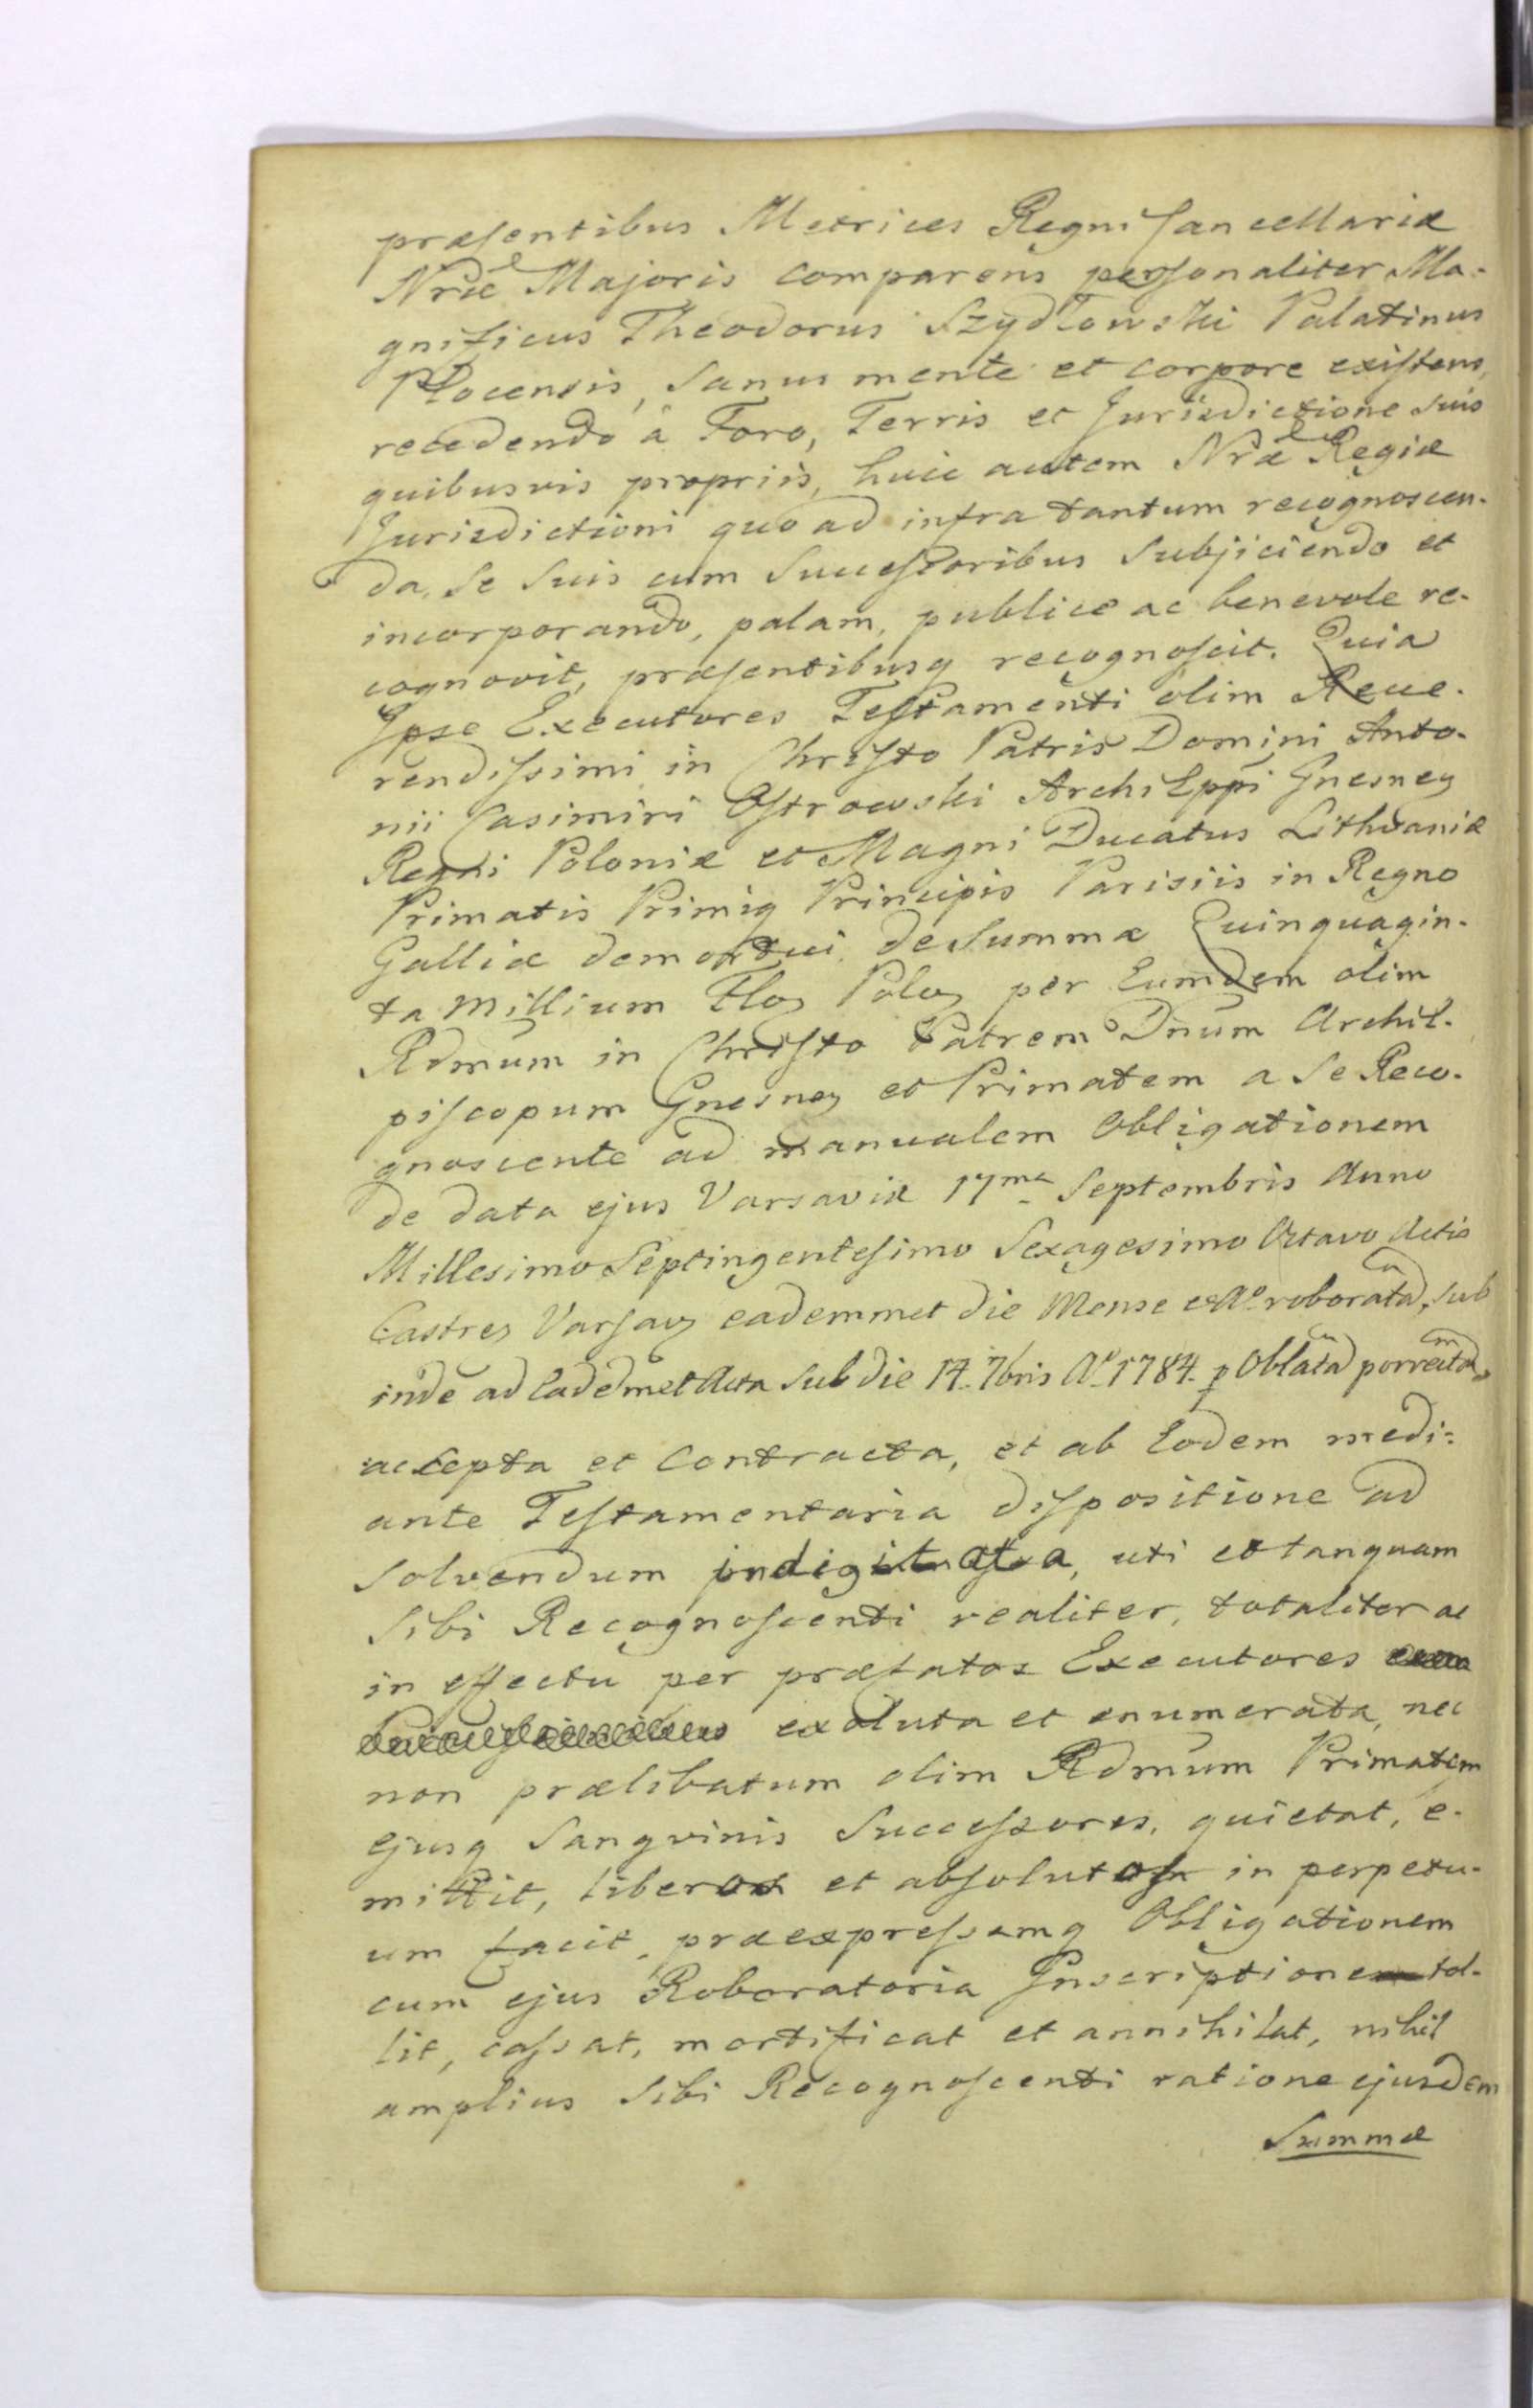 præsentibus Metrices Regni Cancellariæ
Nræ Majoris comparens personaliter Ma-
gnificus Theodorus Szydłowski Palatinus
Plocensis, Sanus mente et corpore existens,
recedendo à Foro, Terris et Jurisdictione suis
quibusvis propriis, huic autem Nræ Regiæ
Jurisdictioni quo ad infra tantum recognoscen-
da, se suis cum Successoribus Subjiciendo et
incorporando, palam, publice ac benevole re-
cognovit, præsentibusq recognoscit. Quia
Ipse Executores Testamenti olim Reve-
rendissimi in Christo Patris Domini Anto-
nii Casimiri Ostrowski ArchiEppi Gnesnen
Regni Poloniæ et Magni Ducatus Lithvaniæ
Primatis Primiq Principis Parisiis in Regno
Galliæ demortui, de Summa Quinquagin-
ta Millium Flor Polor per Eumdem olim
Rdmum in Christo Patrem Dnum Archie-
piscopum Gnesnen et Primatem a Se Reco-
gnoscente ad manualem Obligationem
de data ejus Varsaviæ 17ma Septembris Anno
Millesimo Septingentesimo Sexagesimo Octavo Actis
Castren Varsav eademmet die Mense et Ao roboratam, sub
inde ad Eademet Acta sub die 14. 7bris Ao 1784. p Oblatam porrectam,
accepta et Contracta, et ab Eodem medi-
ante Testamentaria dispositione ad
Solvendum indigitata, uti et tanquam
Sibi Recognoscenti realiter, totaliter ac
in effectu per præfatos Executores
exoluta et enumerata, nec
non prælibatum olim Rdmum Primatem
ejusq Sangvinis Successores, quietat, e-
mittit, liberos et absolutos in perpetu-
um facit, præexpressamq Obligationem
cum ejus Roboratoria Inscriptione tol-
lit, cassat, mortificat et annihilat, nihil
amplius Sibi Recognoscenti ratione ejusdem
Summæ